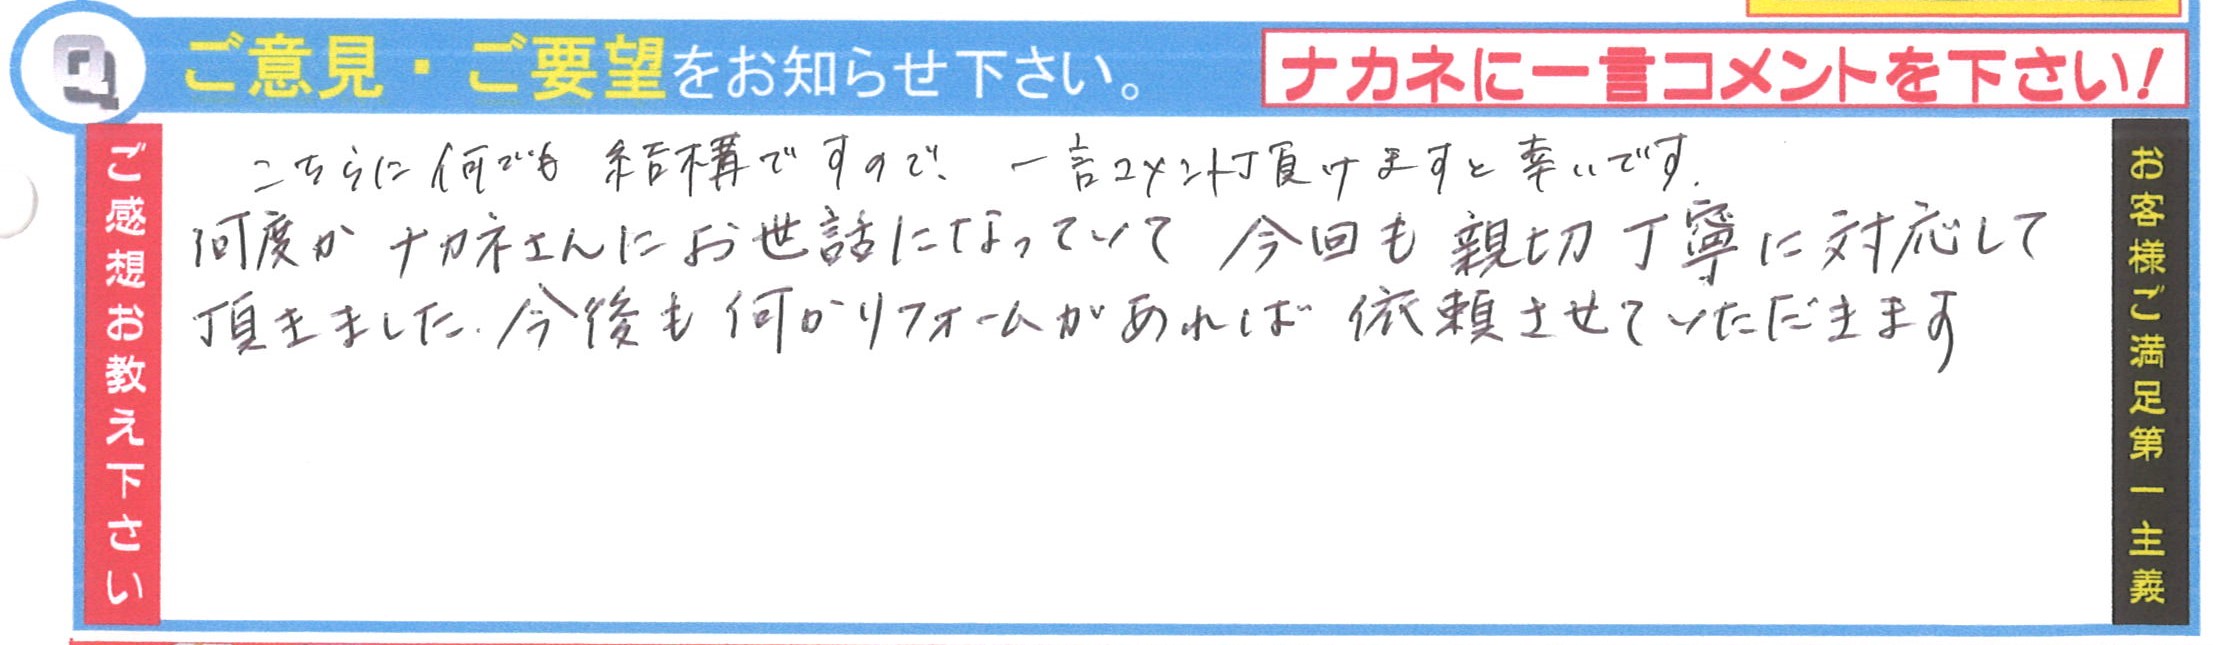 Q ご意見・ご要望をお知らせ下さい。
ナカネに一言コメントを下さい!
ご感想お教え下さい
こちらに何でも結構ですので、一言コメント頂けますと幸いです.
何度かナカネさんにお世話になっていて 今回も親切丁寧に対応して
頂きました.今後も何かリフォームがあれば 依頼させていただきます
お客様ご満足第一主義